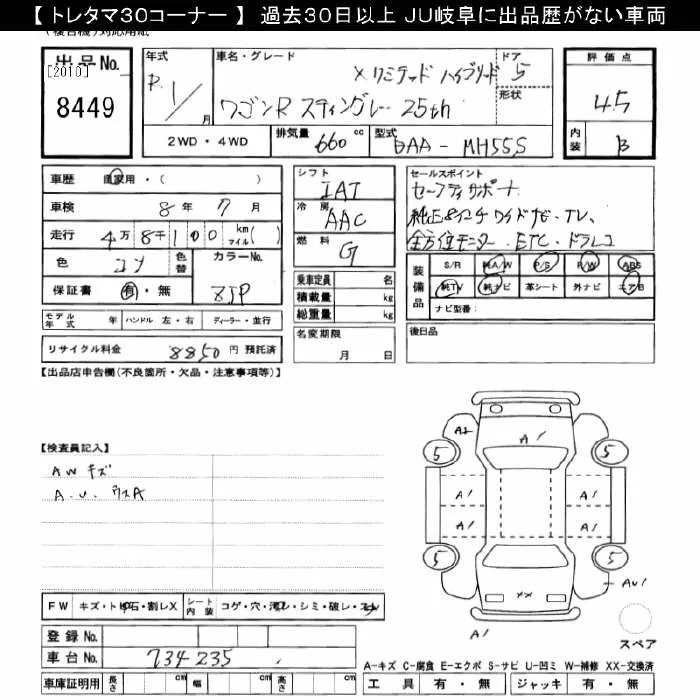 【 トレタマ30コーナー 】 過去30日以上 JU岐阜に出品歴がない車両
出品No.
[2010]
8449
年式
R 1/
月
車名・グレード
X リミテッド ハイブリッド
ワゴンR スティングレー 25th
ドア
5
形状
評価点
4.5
内装
B
2WD ・ 4WD
排気量
660 cc
型式
DAA - MH55S
車歴 自家用・( )
車検 8 年 7 月
走行 4万 8千 100 km マイル( )
色
色替
カラーNo.
ZJP
保証書 有・無
モデル年式 年
ハンドル 左・右
ディーラー・並行
リサイクル料金 8850 円 預託済
シフト
IAT
冷房
AAC
燃料
G
乗車定員 名
積載量 kg
総重量 kg
名変期限
月 日
セールスポイント
セーフティサポート
純正8インチワイドナビ・TV、
全方位モニター・ETC・ドラレコ
装備品
S/R 純A/W P/S P/W ABS
純TV 純ナビ 革シート 外ナビ エアB
ナビ型番:
後日品
【出品店申告欄(不良箇所・欠品・注意事項等)】
【検査員記入】
AW キズ
A.U. ウスA
FW キズ・トビ石・割レX
シート内装 コゲ・穴・汚レ・シミ・破レ・スレ
登録 No.
車台 No. 734235
車庫証明用 長さ cm 幅 cm 高さ cm
A1
5
5
A1
A1
A1
A1
5
5
XX
AU1
A1
スペア
A-キズ C-腐食 E-エクボ S-サビ U-凹ミ W-補修 XX-交換済
工具 有・無 ジャッキ 有・無